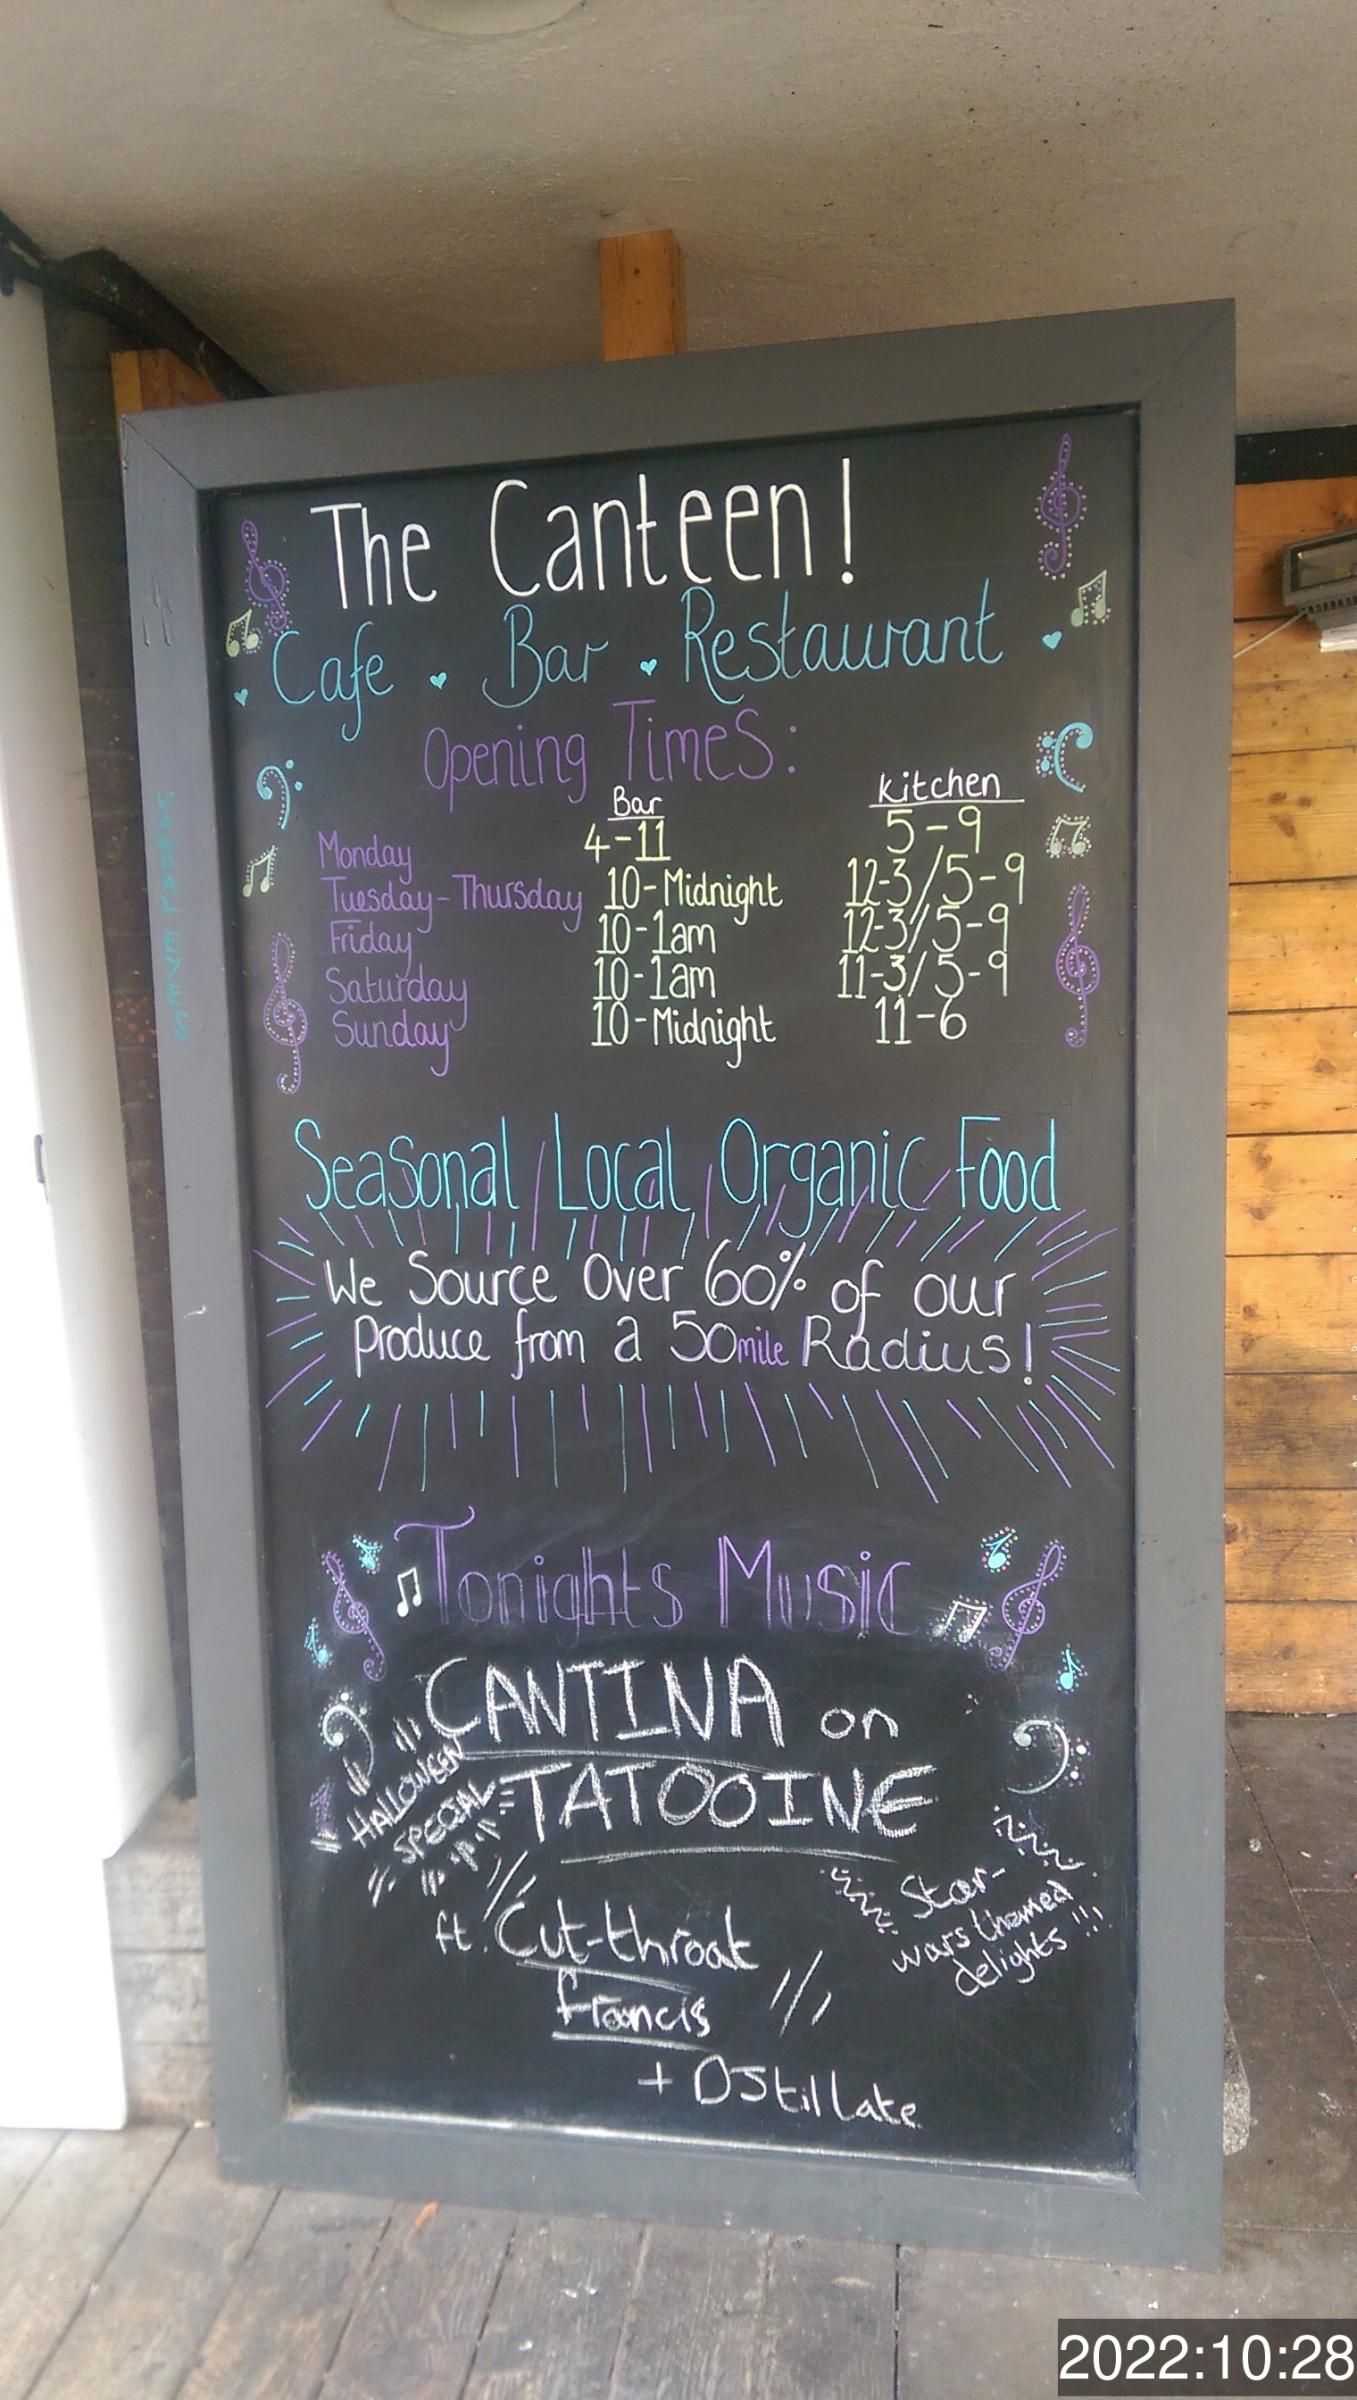 The Canteen!
Cafe . Bar . Restaurant .
Opening Times:
Bar Kitchen
Monday 4-11 5-9
Tuesday-Thursday 10-Midnight 12-3/5-9
Friday 10-1am 12-3/5-9
Saturday 10-1am 11-3/5-9
Sunday 10-Midnight 11-6
VANDAL EYES
Seasonal Local Organic Food
We Source Over 60% of our
Produce from a 50mile Radius!
Tonights Music
CANTINA on
TATOOINE
HALLOWEEN
SPECIAL
ft. Cut-throat
francis
+ DJStillate
Star-
wars themed
delights!!!
2022:10:28